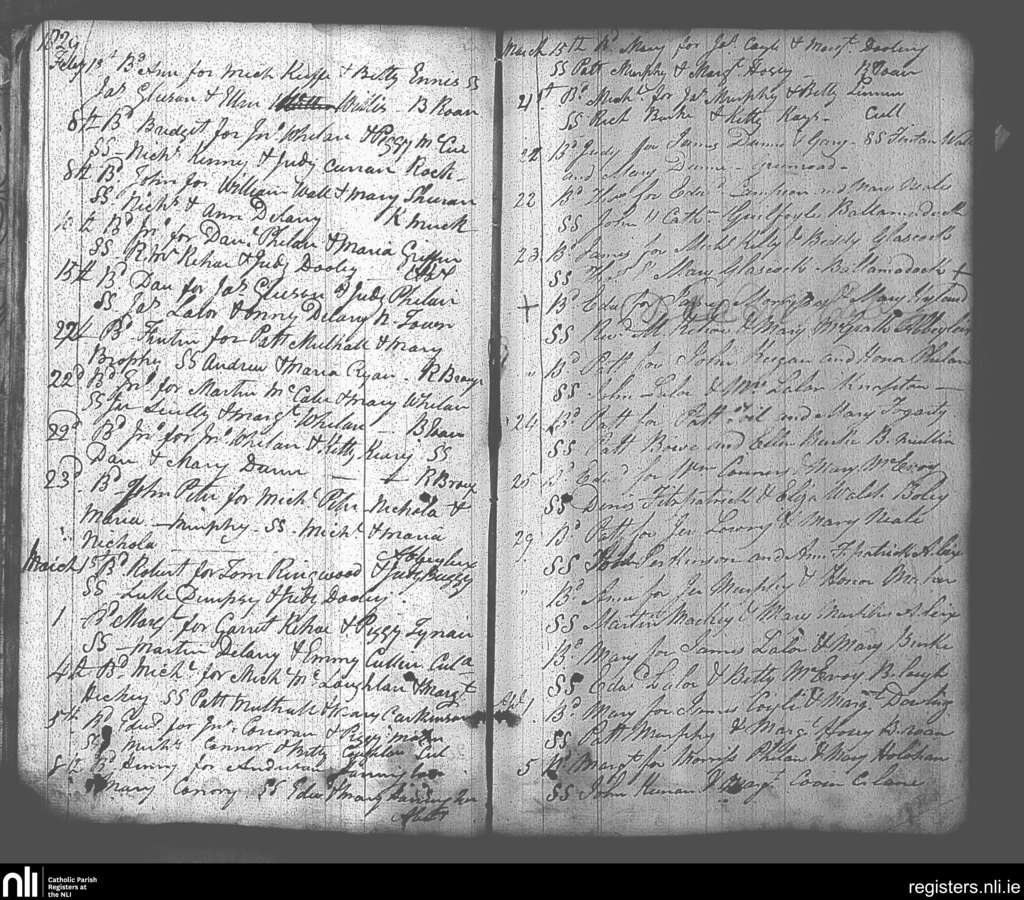 1829
Feby 1st Bd Ann for Mich Keeffe & Betty Ennes SS
Jas Gleeson & Ellen Wislin - B Roan
8th Bd Bridget for Jno Whelan & Peggy McCue
SS - Nichs Kenny & Judy Curran Rock -
8th Bd John for William Wall & Mary Sheeran
SS Nichs & Ann Delany K muck
Bd Jno for Danl Phelan & Maria Griffin
SS Kehoe & Judy Dooley
15th Bd Dan for Jas Gleeson & Judy Phelan
SS Jas Lalor & Delany N. Town
22d Bd Fintin for Patt Mulhall & Mary
Brophy SS Andrew & Maria Ryan - R Bray
22d Bd Jno for Martin McCabe & Mary Whelan
SS Jer Scully & Margt Whelan - B Roan
22d Bd Jno for Jno Whelan & Kitty Keary SS
Dan & Mary Dunn - R Bray
23d Bd John Peter for Michl Peter Nichola &
Maria - Murphy - SS - Michl & Maria
Nichola Abbeyleix
March 1st Bd Robert for Tom Ringwood & Judy Buggy
SS - Luke Dempsy & Judy Dooley
1 Bd Margt for Garret Kehoe & Peggy Tynan
SS - Martin Delany & Emmy Cullen
4th Bd Michl for Michl McLoughlan & Margt
Hickey SS Patt Mulhall & Mary Parkinson
5th Bd Edwd for Jno Corcoran & Peggy
SS Michl Connor & Betty
8th Bd Henry for Anderson Fannington
Mary Conroy - SS Edw & Mary
March 15th Bd Mary for Jas Coyle & Margt Dooling
SS Patt Murphy & Margt Hosey - B Roan
21st Bd Michl for Jas Murphy & Betty
SS Rich Burke & Kitty Kays -
22 Bd Judy for James Dunne & SS Fintan Wall
and Mary Dunne -
22 Bd Thos for Edwd Lampson and Mary Neale
SS John & Cathn Guilfoyle Ballamadock
23 Bd James for Michl Kelly & Biddy Glascock
SS Thos & Mary Glascock - Ballamadock +
+ Bd Edw for James & Mary
SS Revd Kehoe & Mary
" Bd Patt for John Keegan and Honor Phelan
SS John Lalor & Lalor Knapton -
24 Bd Patt for Patt and Mary Fogarty
SS Patt Bowe and Ellen Burke B. mullin
25 Bd Edwd for Wm Connor & Mary McEvoy
SS Denis Fitzpatrick & Eliza Walsh Boley
29 Bd Patt for Jer Lowry & Mary Neale
SS John Perkinson and Ann Fitzpatrick A. leix
" Bd Anne for Jer Murphy & Honor Maher
SS Martin Mackey & Mary A. leix
Bd Mary for James Lalor & Mary Burke
SS Edwd Lalor & Betty McEvoy
Bd Mary for James Coyle & Margt Dowling
SS Patt Murphy & Margt Hosey B. roan
5 Bd Margt for Phelan & Mary Holohan
SS John Keenan & Margt
nli
Catholic Parish
Registers at
the NLI
registers.nli.ie